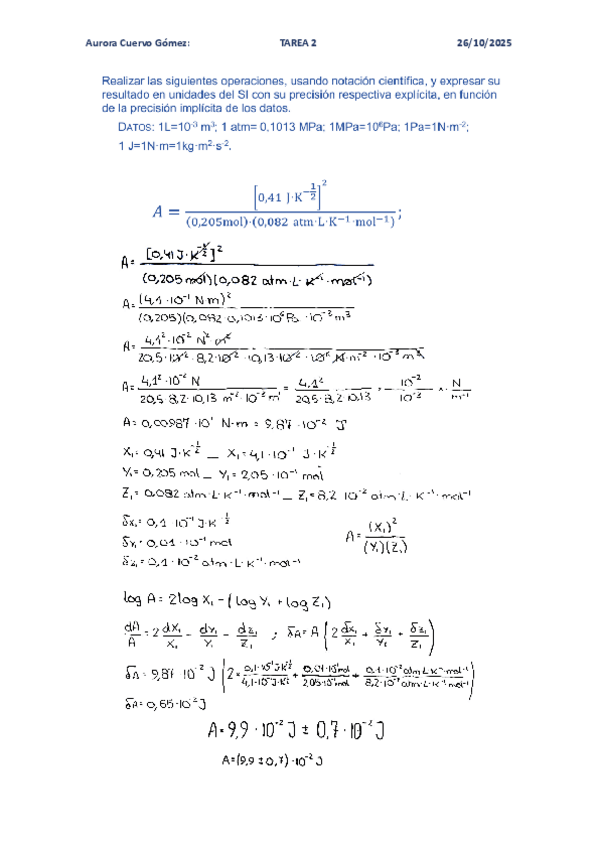 Aurora Cuervo Gómez: TAREA 2 26/10/2025
Realizar las siguientes operaciones, usando notación científica, y expresar su
resultado en unidades del SI con su precisión respectiva explícita, en función
de la precisión implícita de los datos.
DATOS: 1L=10⁻³ m³; 1 atm= 0,1013 MPa; 1MPa=10⁶Pa; 1Pa=1N·m⁻²;
1 J=1N·m=1kg·m²·s⁻².
A = [0,41 J·K^(-1/2)]² / (0,205mol)·(0,082 atm·L·K⁻¹·mol⁻¹) ;
A= [0,41 J·K^(-1/2)]² / (0,205 mol)(0,082 atm·L·K⁻¹·mol⁻¹)
A= (4,1·10⁻¹ N·m)² / (0,205)(0,082·0,1013·10⁶Pa·10⁻³m³
A= 4,1²·10⁻² N² m² / 20,5·10⁻²·8,2·10⁻²·10,13·10⁻²·10⁶ N·m⁻²·10⁻³ m³
A= 4,1²·10⁻² N / 20,5·8,2·10,13 m⁻²·10⁻³ m = 4,1² / 20,5·8,2·10,13 = 10⁻² / 10⁻³ · N / m⁻¹
A= 0,00987·10¹ N·m = 9,87·10⁻² J
X₁= 0,41 J·K^(-1/2) — X₁= 4,1·10⁻¹ J·K^(-1/2)
Y₁= 0,205 mol — Y₁= 2,05·10⁻¹ mol
Z₁= 0,082 atm·L·K⁻¹·mol⁻¹ — Z₁= 8,2·10⁻² atm·L·K⁻¹·mol⁻¹
δx₁= 0,1·10⁻¹ J·K^(-1/2)
δy₁= 0,01·10⁻¹ mol A= (X₁)² / (Y₁)(Z₁)
δz₁= 0,1·10⁻² atm·L·K⁻¹·mol⁻¹
log A= 2log X₁ - (log Y₁ + log Z₁)
dA/A = 2 dX₁/X₁ - dY₁/Y₁ - dZ₁/Z₁ ; δA= A (2 δx₁/X₁ + δy₁/Y₁ + δz₁/Z₁)
δA= 9,87·10⁻² J (2× 0,1·10⁻¹J·K^(1/2) / 4,1·10⁻¹J·K^(1/2) + 0,01·10⁻¹mol / 2,05·10⁻¹mol + 0,1·10⁻²atm·L·K⁻¹·mol⁻¹ / 8,2·10⁻²atm·L·K⁻¹·mol⁻¹)
δA= 0,65·10⁻²J
A= 9,9·10⁻² J ± 0,7·10⁻² J
A=(9,9 ± 0,7)·10⁻² J